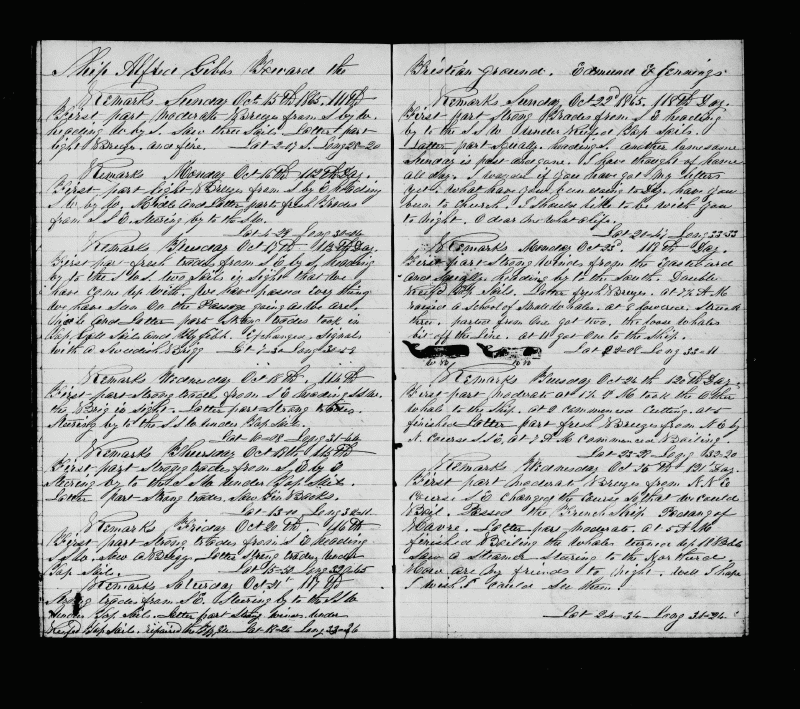 Ship Alfred Gibbs Toward the
Remarks Sunday Oct 15th 1865. 111th
First part moderate Breezes from S by W.
heading W. by S. Saw three Sail. Latter part
light Breezes and fine. Lat 2-17 S. Long 28-20
Remarks Monday Oct 16th 112th Day.
First part light Breezes from S by E heading
S W. by W. Middle and Latter part fresh Trades
from S S E. Steering by to the S W.
Remarks Tuesday Oct 17th 113th Day.
First part fresh trades from S E by S. heading
by to the S W two Sails in Sight that we
have come up with. We have passed every thing
we have seen on the Passage going as we are.
Middle and Latter part Strong trades took in
Gallt Sails and Flying Jibb. Exchanged Signals
with a Swedish Brigg Lat 4-30 Long
Remarks Wednesday Oct 18th. 114th
First part Strong trades from S E heading S S W.
the Brig in Sight. Latter part Strong trades
Steering by to the S S W under Top Sails.
Lat 6-08 Long 31-44
Remarks Thursday Oct 19th. 115th
First part Strong trades from S. E by E
Steering by to the S S W under Top Sails.
Latter part Strong trades. Saw Fin Backs.
Lat 13-00 Long
Remarks Friday Oct 20th 116th
First part Strong trades from S E heading
S S W. Saw a Brigg. Latter Strong trades under
Top Sails. Lat 15-50 Long
Remarks Saturday Oct 21st 117th
Strong trades from S E. Steering by to the S S W
under Top Sails. Latter part Strong winds. under
Reefed Top Sails. repaired the Lat 18-20 Long 33-36
Tristian ground. Edmund F Jennings
Remarks Sunday Oct 22nd 1865. 118th Day.
First part Strong Trades from S E heading
by to the S S W under Reefed Top Sails.
Latter part Squally. windings. another lonesome
Sunday is past and gone. I have thought of home
all day. I wonder if you have got my letters
yet. What have you been doing to Day. have you
been to Church. I should like to be with you
to Night. O dear me what a life.
Lat 21-24 Long 33-33
Remarks Monday Oct 23d. 119th Day.
First part Strong winds from the Eastward
and Squally Heading by to the South. Double
reefed Top Sails. Latter fresh Breezes. at 7½ A M
raised a School of Sperm Whales. at 8 lowered. Struck
three. parted from One got two. the loose whales
bit off the line. at 11 got one to the Ship.
Lat 22-08 Long 33-11
Remarks Tuesday Oct 24th 120th Day.
First part moderate at 1½ P M took the Other
Whale to the Ship. at 2 commenced Cutting. at 5
finished Latter part fresh Breezes from N. E by
N. Course S S E. at 7 P M commenced Boiling.
Lat 23-21 Long 32-20
Remarks Wednesday Oct 25th 121st Day.
First part moderate Breezes from N. N E
Course S E changed the Course So that we could
Boil. Passed the French Ship of
Havre. Latter part moderate. at 5 A M
finished Boiling the Whales turned up Bbls
Saw a Steamer Steering to the Northward
How are my friends to Night. well I hope
I wish I could See them.
Lat 24-34 Long 31-24